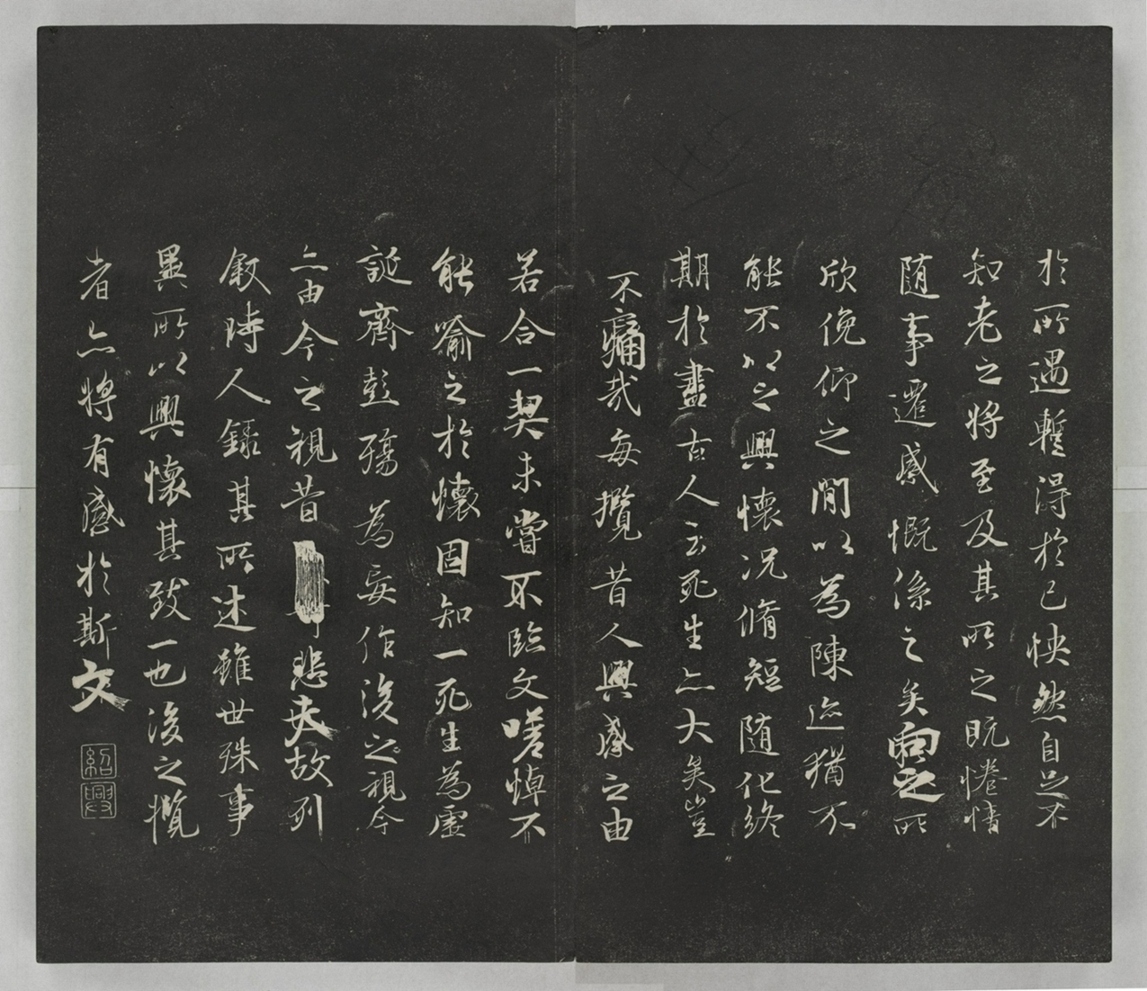 於所遇蹔得於己怏然自足不
知老之將至及其所之既惓情
随事遷感慨係之矣向之所
欣俛仰之閒以為陳迹猶不
能不以之興懷况脩短随化終
期於盡古人云死生亦大矣豈
不痛哉每攬昔人興感之由
若合一契未嘗不臨文嗟悼不
能喻之於懷固知一死生為虛
誕齊彭殤為妄作後之視今
亦由今之視昔悲夫故列
叙時人錄其所述雖世殊事
異所以興懷其致一也後之攬
者亦將有感於斯文
紹興